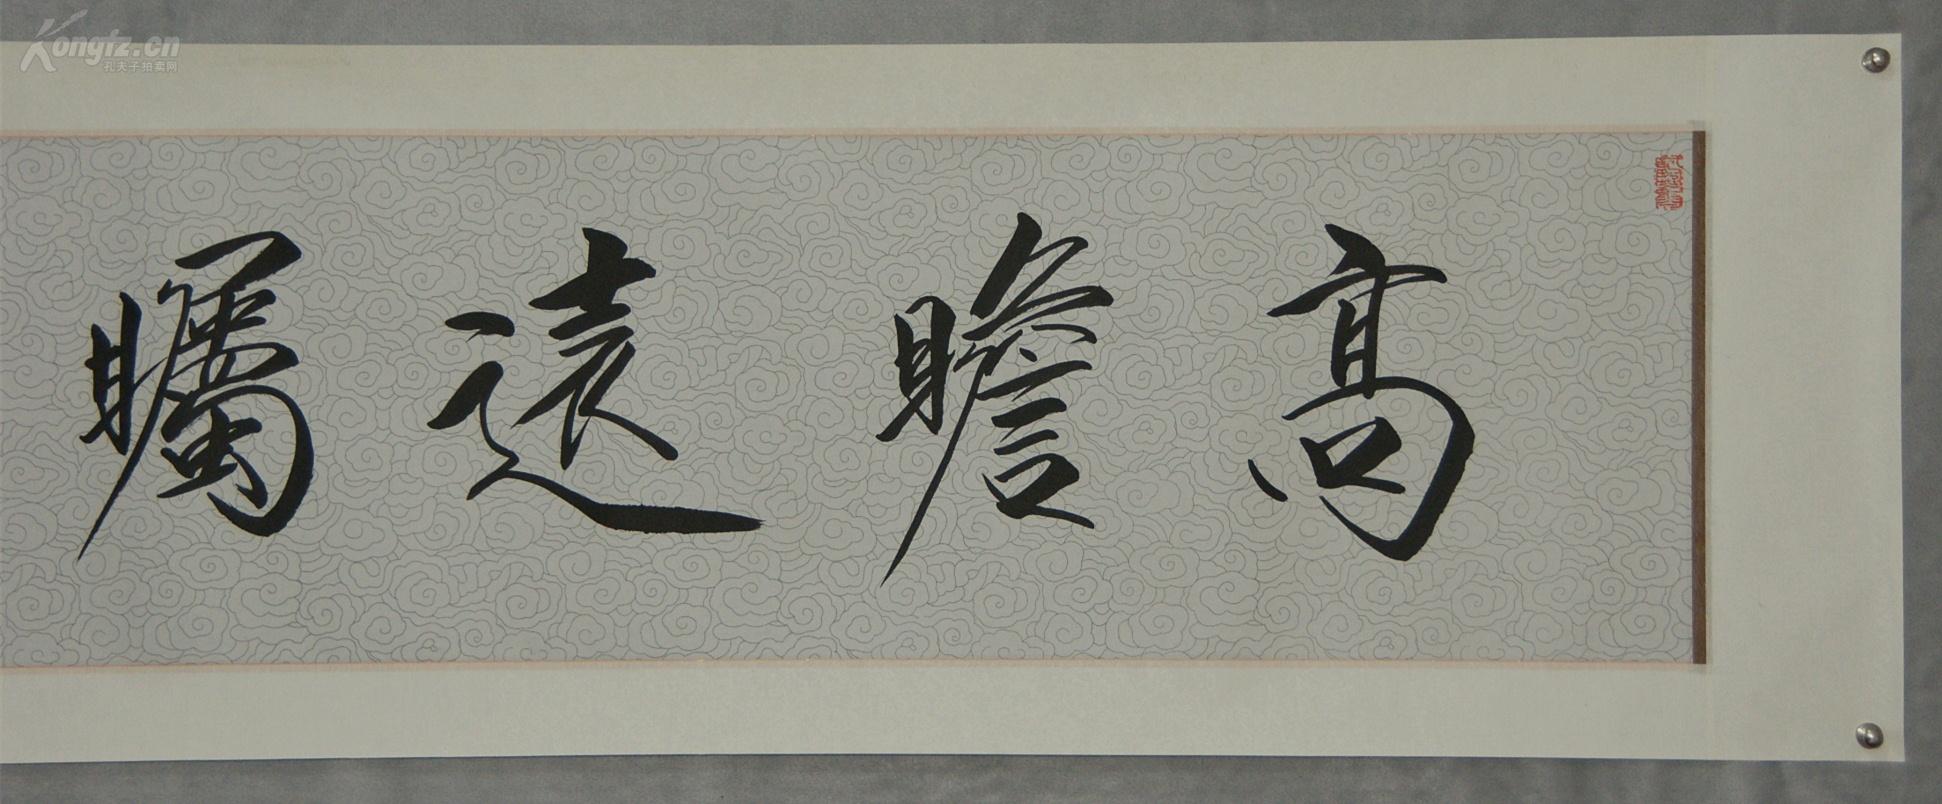 高瞻遠矚
Kongfz.cn
孔夫子拍卖网